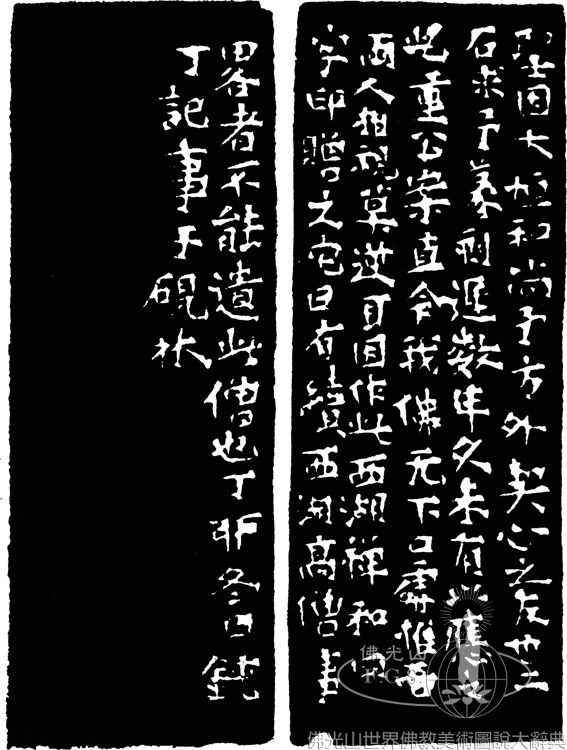 大恒和尚予方外契心之友
石求予篆刻遲數年久未有以應
此重公案直令我佛无下口處惟吾
兩人相視莫逆耳因作此西湖禪和
字印贈之它日有續西湖高僧事
畧者不能遺此僧也丁卯冬日鈍
丁記事于硯林
佛光山
F.G.S.
佛光山世界佛教美術圖說大辭典